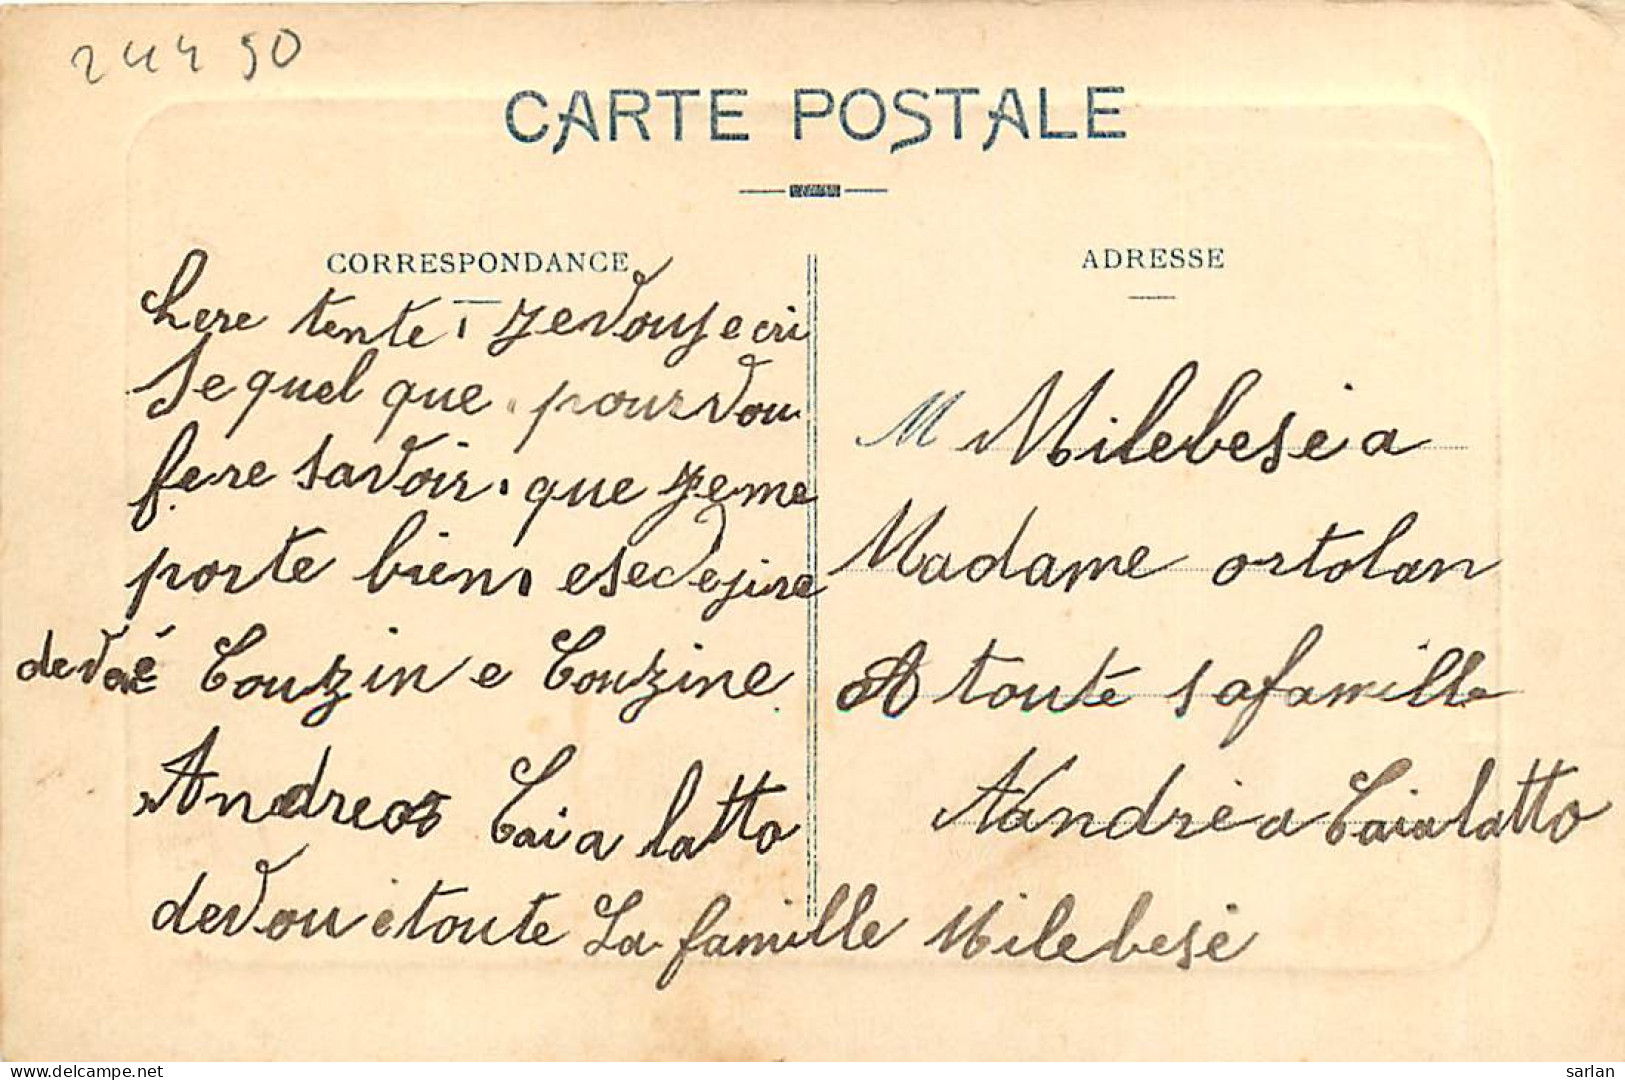 24450
CARTE POSTALE
CORRESPONDANCE
Chere tente, ze vous ecri
se quel que pour vou
fere savoir. que ze me
porte bien, e se dezire
de voé Couzin e Couzine
Andrea Caia latto
de vou e toute La famille Milebesé
ADRESSE
M Milebesé a
Madame ortolan
A toute sa famille
Nandréa Caialatto
delcampe.net
sarlan